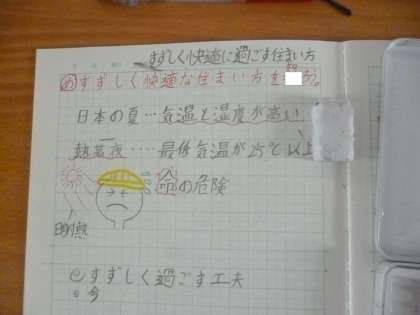 すずしく快適に過ごす住まい方
めすずしく快適な住まい方を
日本の夏…気温と湿度が高い
熱帯夜……最低気温が25℃以上
命の危険
日射熱
すずしく過ごす工夫
今